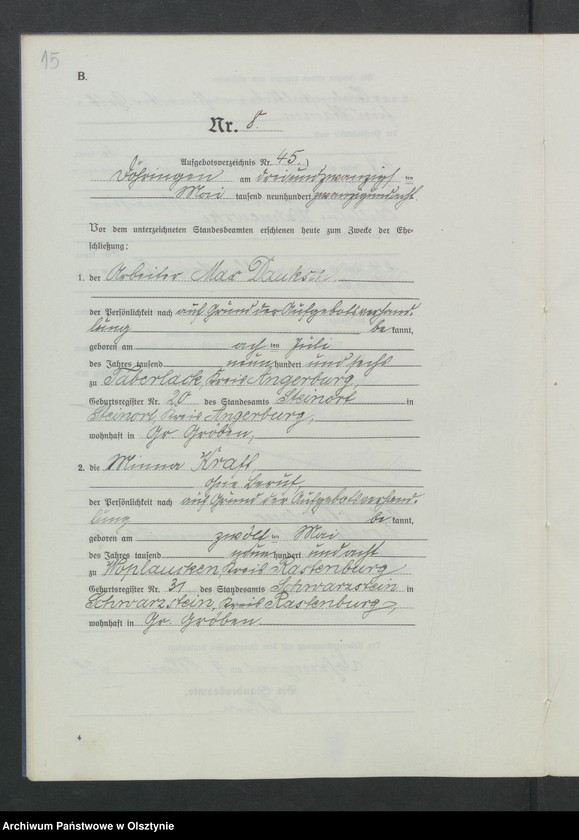 15
B.
Nr. 8.
Aufgebotsverzeichnis Nr. 45.)
Döhringen am dreiundzwanzigsten
Mai tausend neunhundert zwanzigundacht.
Vor dem unterzeichneten Standesbeamten erschienen heute zum Zwecke der Ehe-
schließung:
1. der Arbeiter Max
der Persönlichkeit nach auf Grund der Aufgebotsverhand-
lung bekannt,
geboren am ten Juli
des Jahres tausend neunhundert und sechs
zu Taberlack, Kreis Angerburg,
Geburtsregister Nr. 20 des Standesamts Steinort in
Steinort, Kreis Angerburg,
wohnhaft in Gr. Gröben,
2. die Minna Kraft,
ohne Beruf,
der Persönlichkeit nach auf Grund der Aufgebotsverhand-
lung bekannt,
geboren am zwölften Mai
des Jahres tausend neunhundert und acht
zu Woplauken, Kreis Rastenburg
Geburtsregister Nr. 31 des Standesamts Schwarzstein in
Schwarzstein, Kreis Rastenburg,
wohnhaft in Gr. Gröben
4
Archiwum Państwowe w Olsztynie